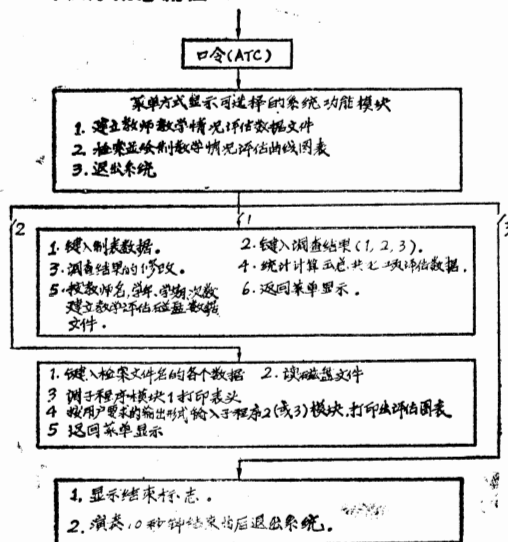 口令(ATC)
菜单方式显示可选择的系统功能模块
1. 建立教师教学情况评估数据文件
2. 检索并绘制教学情况评估曲线图表
3. 退出系统
2
1
3
1. 键入制表数据。
2. 键入调查结果(1,2,3)。
3. 调查结果的修改。
4. 统计计算 总共七 项评估数据.
5. 按教师名,学年,学期,次数
建立教学评估磁盘数据
文件.
6. 返回菜单显示。
1. 键入检索文件名的各个数据
2. 读磁盘文件
3 调子程序模块1打印表头
4 按用户要求的输出形式 入子程序2(或3)模块,打印出评估图表
5 返回菜单显示
1. 显示结束标志。
2. 演奏10秒钟结束 后退出系统。